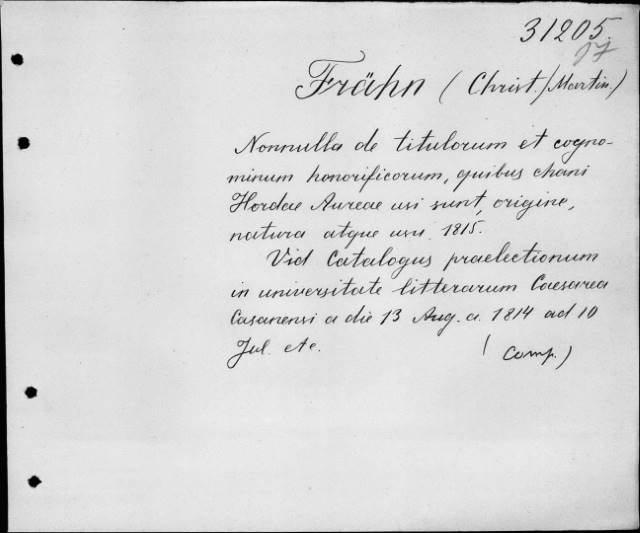 31205.
97
Frähn (Christ. Martin.)
Nonnulla de titulorum et cogno-
minum honorificorum, quibus chani
Hordae Aureae usi sunt, origine,
natura atque usu. 1815.
Vid Catalogus praelectionum
in universitate litterarum Caesarea
Casanensi a die 13 Aug. a. 1814 ad 10
Jul. etc. (Comp.)